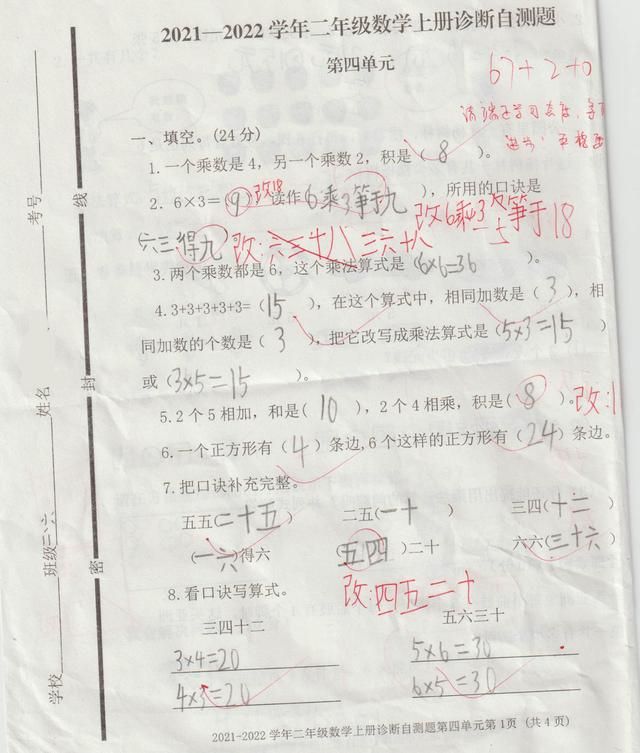 2021—2022学年二年级数学上册诊断自测题
第四单元
67+2+0
一、填空。(24分)
1.一个乘数是4，另一个乘数2，积是（8）。
2. 6×3=（9）改18 读作（6乘3等于九），所用的口诀是
改6乘3等于18
六三得九 改:六三十八 三六十八
3.两个乘数都是6，这个乘法算式是（6×6=36）。
4.3+3+3+3+3=（15），在这个算式中，相同加数是（3），相
同加数的个数是（3），把它改写成乘法算式是（5×3=15）
或（3×5=15）。
5.2个5相加，和是（10），2个4相乘，积是（8）。改:1
6.一个正方形有（4）条边,6个这样的正方形有（24）条边。
7.把口诀补充完整。
五五(二十五) 二五(一十) 三四(十二)
(一六)得六 (五四)二十 六六(三十六)
改:四五二十
8.看口诀写算式。
三四十二 五六三十
3×4=20 5×6=30
4×3=20 6×5=30
2021-2022学年二年级数学上册诊断自测题第四单元第1页（共4页）
学校 班级二六 姓名 考号
密 封 线